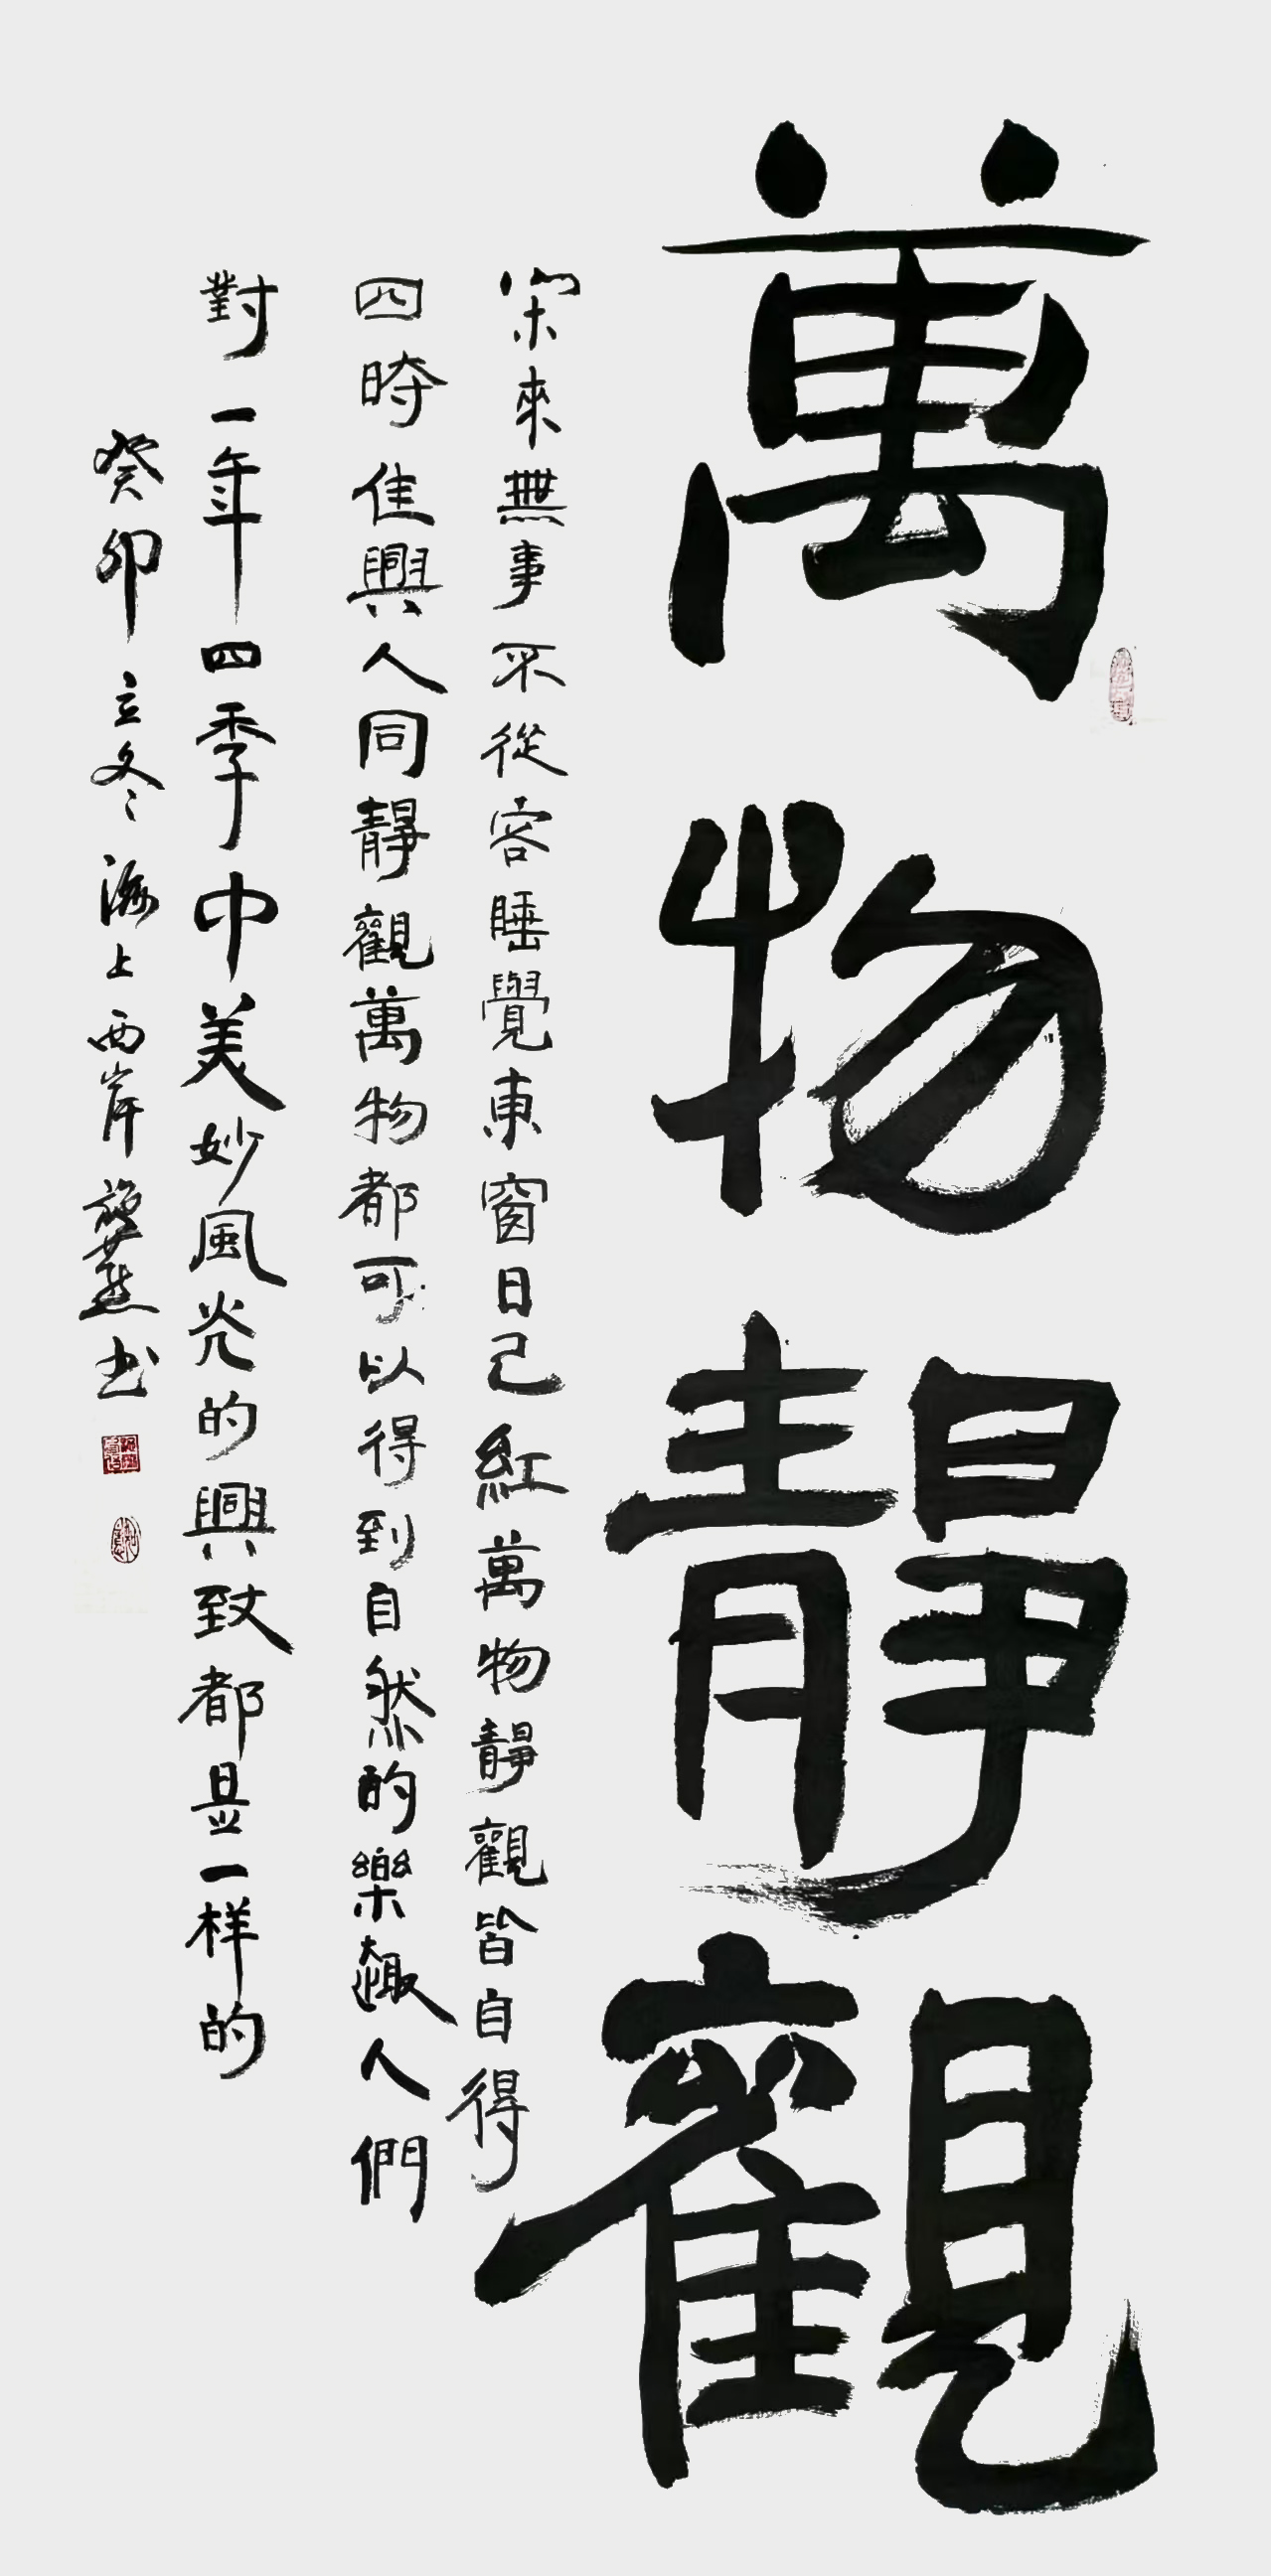 萬物靜觀
閑來無事不從容睡覺東窗日已紅萬物靜觀皆自得
四時佳興人同靜觀萬物都可以得到自然的樂趣人們
對一年四季中美妙風光的興致都是一样的
癸卯立冬海上西岸书